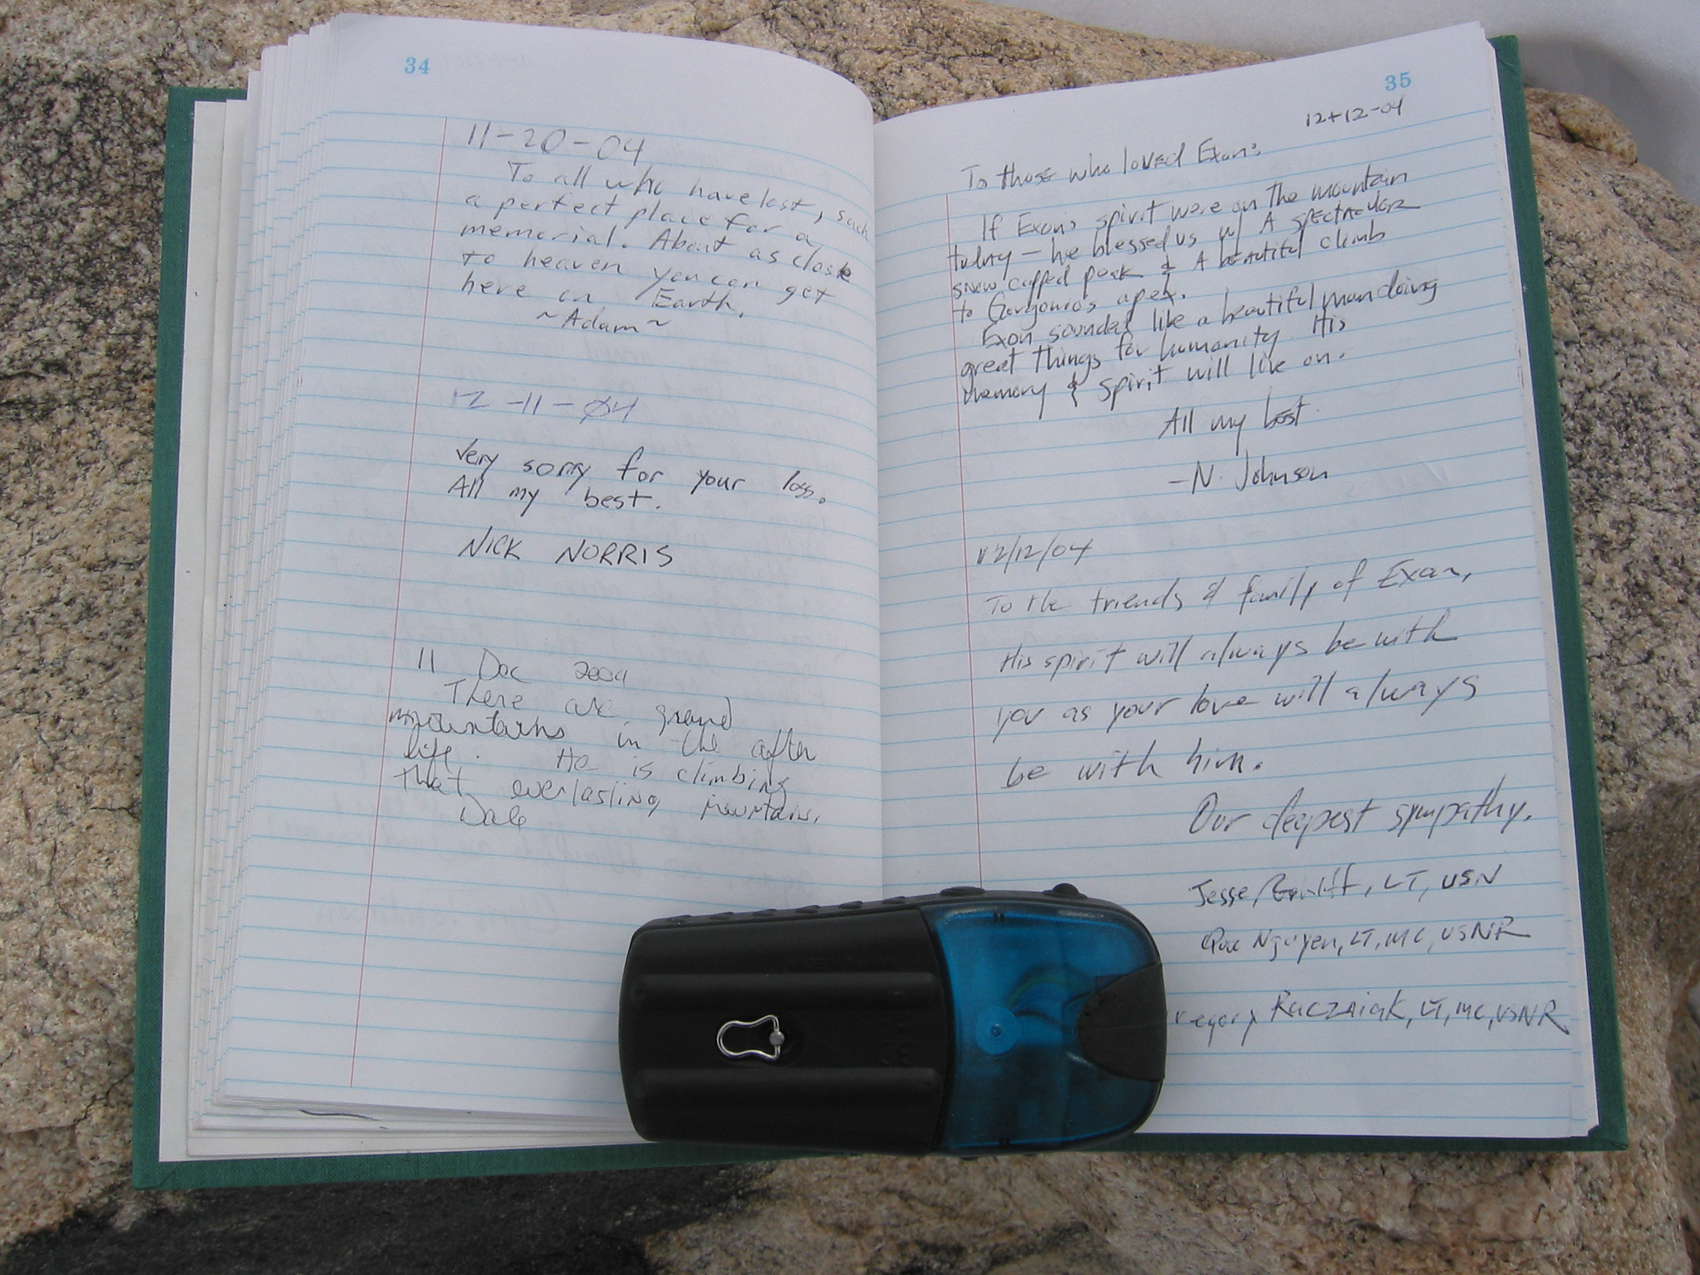 34
11-20-04
To all who have lost, such
a perfect place for a
memorial. About as close
to heaven you can get
here on Earth.
~Adam~
12-11-04
Very sorry for your loss.
All my best.
NICK NORRIS
11 Dec 2004
There are grand
mountains in the after
life. He is climbing
that everlasting mountain.
Dale
35
12-12-04
To those who loved Exan:
If Exan's spirit were on the mountain
today - he blessed us w/ A spectacular
snow capped peak & A beautiful climb
to apex.
Exan sounded like a beautiful man doing
great things for humanity. His
memory & spirit will live on.
All my best
-N. Johnson
12/12/04
To the friends & family of Exan,
His spirit will always be with
you as your love will always
be with him.
Our deepest sympathy.
Jesse LT, USN
Nguyen, LT, MC, USNR
regory Raczniak, LT, MC, USNR